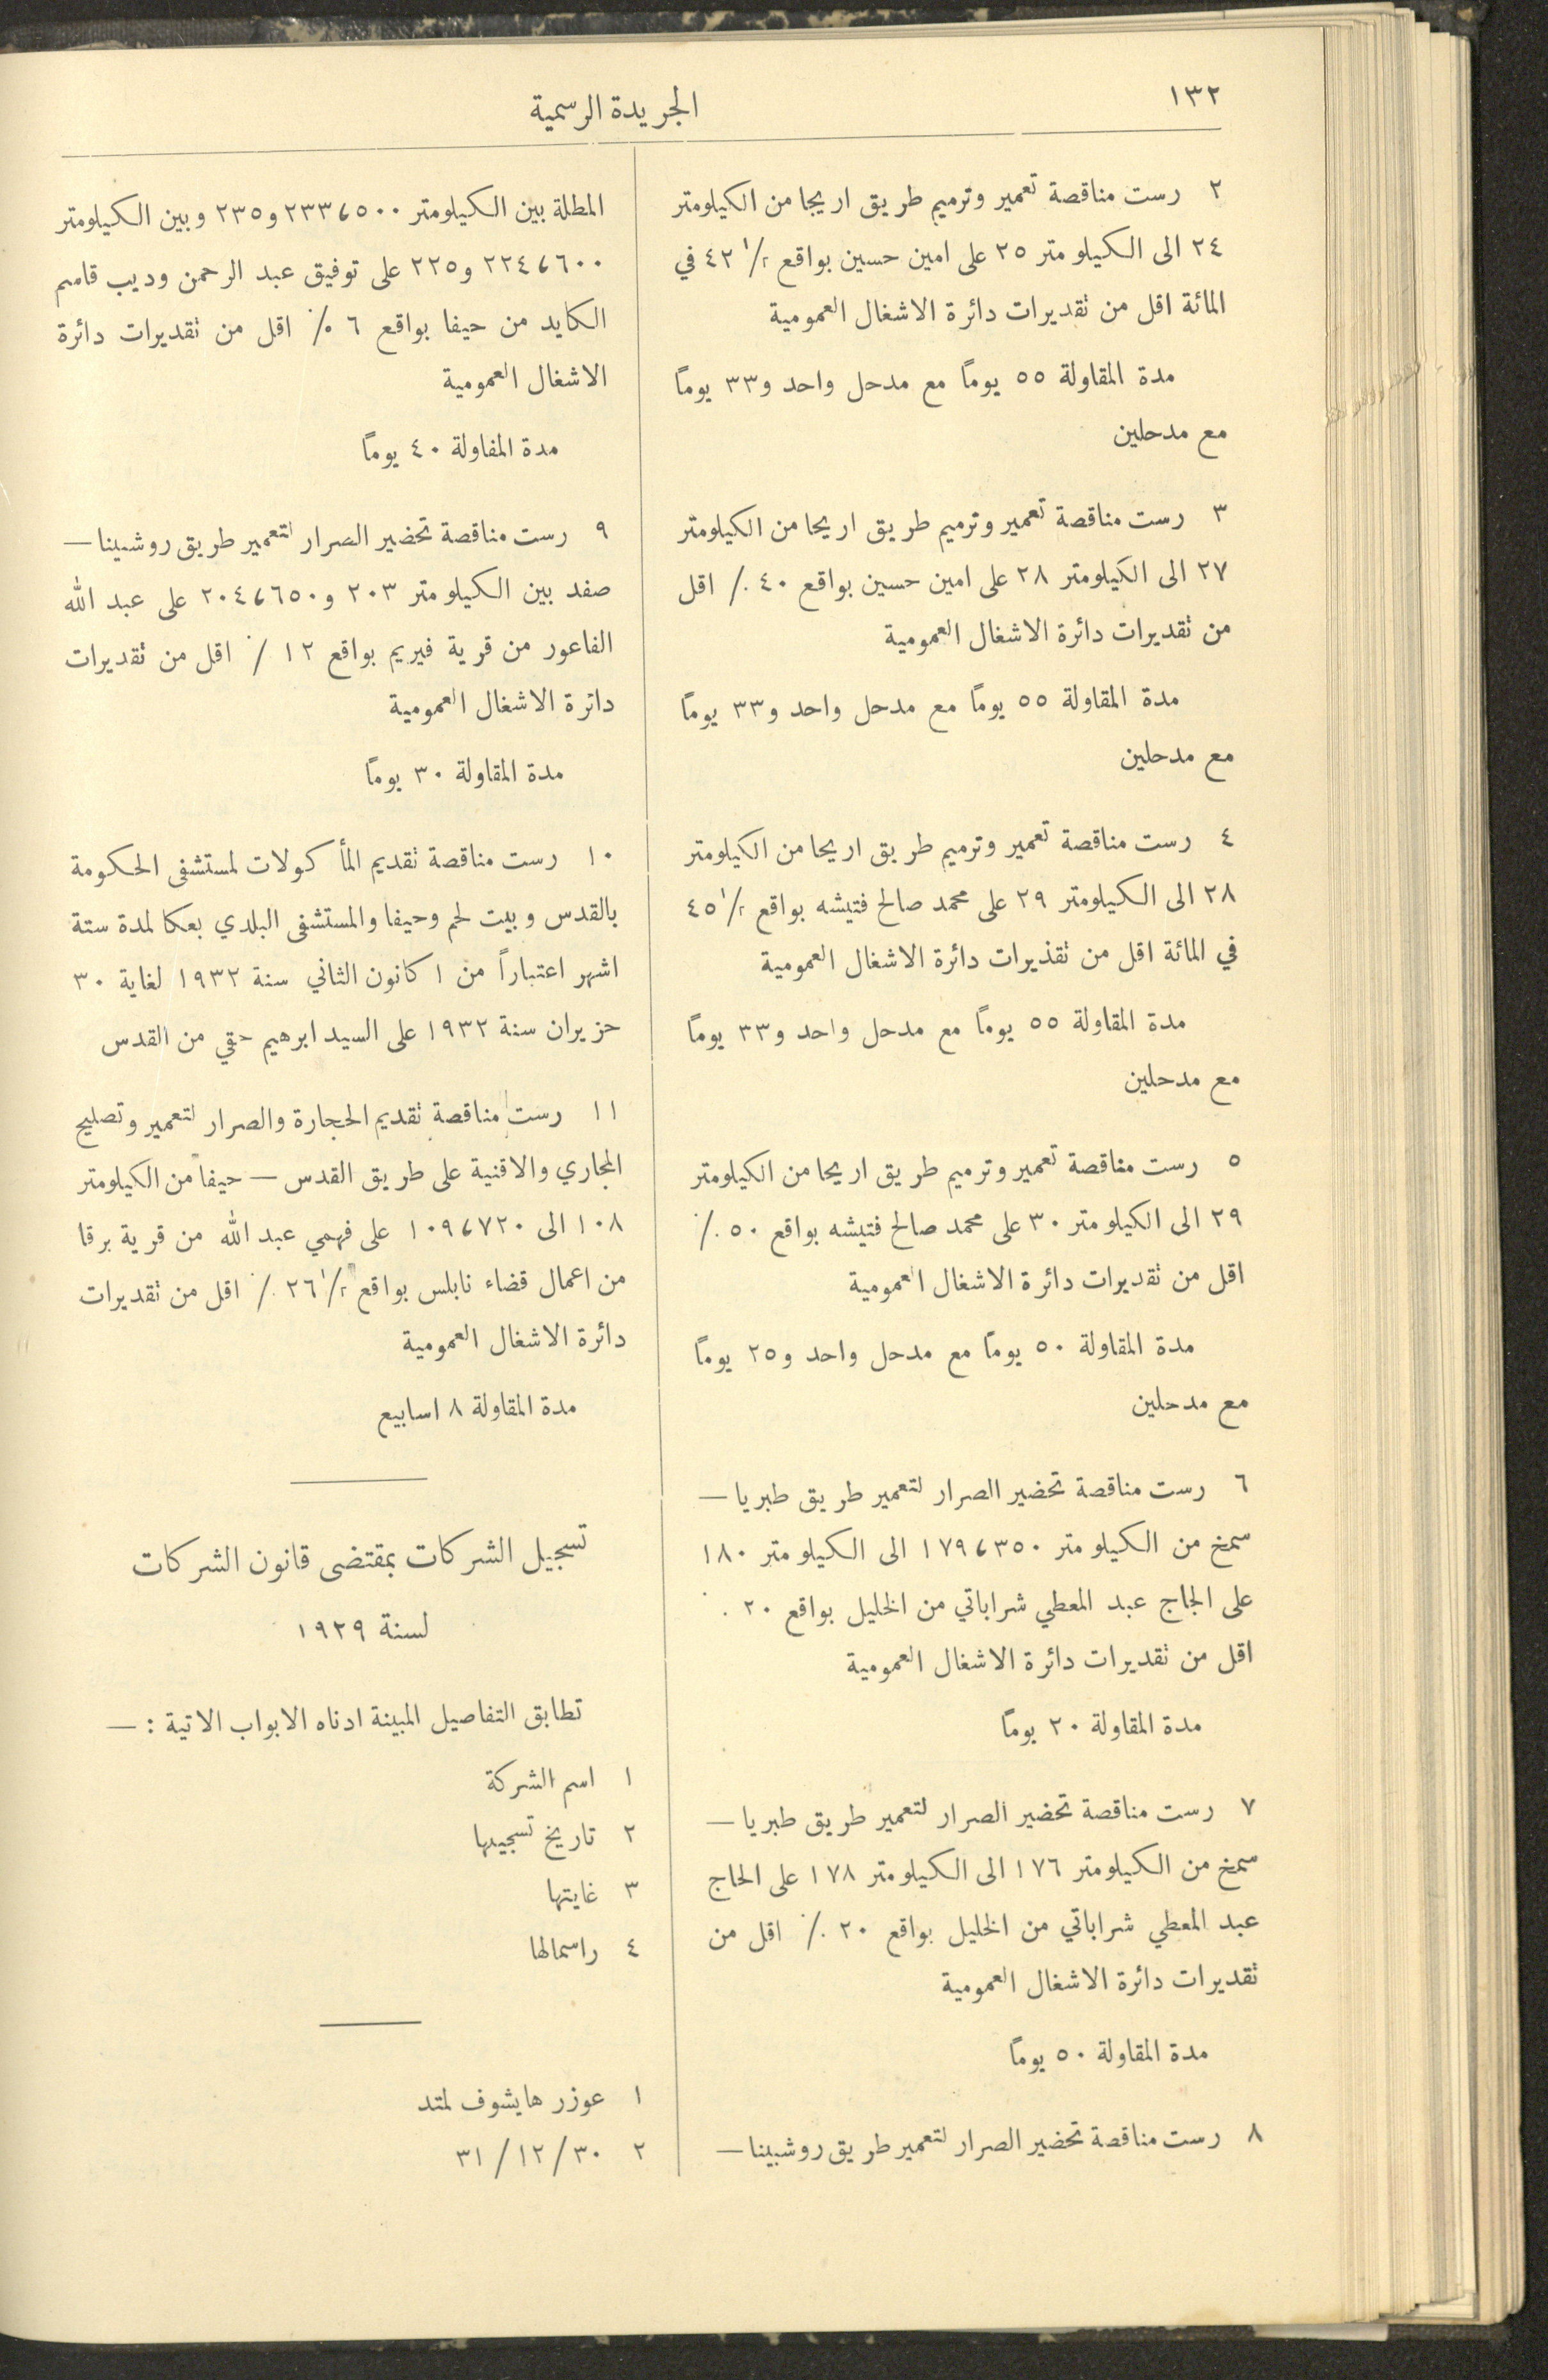 ١٣٢
الجريدة الرسمية
٢ رست مناقصة تعمير وترميم طريق اريحا من الكيلومتر
٢٤ الى الكيلو متر ٢٥ على امين حسين بواقع ١/٢ ٤٢ في
المائة اقل من تقديرات دائرة الاشغال العمومية
مدة المقاولة ٥٥ يوماً مع مدحل واحد و٣٣ يوماً
مع مدحلين
٣ رست مناقصة تعمير وترميم طريق اريحا من الكيلومتر
٢٧ الى الكيلومتر ٢٨ على امين حسين بواقع ٤٠ ٪ اقل
من تقديرات دائرة الاشغال العمومية
مدة المقاولة ٥٥ يوماً مع مدحل واحد و٣٣ يوماً
مع مدحلين
٤ رست مناقصة تعمير وترميم طريق اريحا من الكيلومتر
٢٨ الى الكيلومتر ٢٩ على محمد صالح فتيشه بواقع ١/٢ ٤٥
في المائة اقل من تقذيرات دائرة الاشغال العمومية
مدة المقاولة ٥٥ يوماً مع مدحل واحد و٣٣ يوماً
مع مدحلين
٥ رست مناقصة تعمير وترميم طريق اريحا من الكيلومتر
٢٩ الى الكيلو متر ٣٠ على محمد صالح فتيشه بواقع ٥٠ ٪
اقل من تقديرات دائرة الاشغال العمومية
مدة المقاولة ٥٠ يوماً مع مدحل واحد و٢٥ يوماً
مع مدحلين
٦ رست مناقصة تحضير الصرار لتعمير طريق طبريا —
سمخ من الكيلو متر ١٧٩،٣٥٠ الى الكيلو متر ١٨٠
على الجاج عبد المعطي شراباتي من الخليل بواقع ٢٠ .
اقل من تقديرات دائرة الاشغال العمومية
مدة المقاولة ٢٠ يوماً
٧ رست مناقصة تحضير الصرار لتعمير طريق طبريا —
سمخ من الكيلومتر ١٧٦ الى الكيلومتر ١٧٨ على الحاج
عبد المعطي شراباتي من الخليل بواقع ٢٠ ٪ اقل من
تقديرات دائرة الاشغال العمومية
مدة المقاولة ٥٠ يوماً
٨ رست مناقصة تحضير الصرار لتعمير طريق روشبينا —
المطلة بين الكيلومتر ٢٣٣،٥٠٠ و٢٣٥ وبين الكيلومتر
٢٢٤،٦٠٠ و٢٢٥ على توفيق عبد الرحمن وديب قاسم
الكايد من حيفا بواقع ٦ ٪ اقل من تقديرات دائرة
الاشغال العمومية
مدة المفاولة ٤٠ يوماً
٩ رست مناقصة تحضير الصرار لتعمير طريق روشبينا —
صفد بين الكيلو متر ٢٠٣ و٢٠٤،٦٥٠ على عبد الله
الفاعور من قرية فيريم بواقع ١٢ ٪ اقل من تقديرات
دائرة الاشغال العمومية
مدة المقاولة ٣٠ يوماً
١٠ رست مناقصة تقديم المأ كولات لمستشفى الحكومة
بالقدس وبيت لحم وحيفا والمستشفى البلدي بعكا لمدة ستة
اشهر اعتباراً من ١ كانون الثاني سنة ١٩٣٢ لغاية ٣٠
حزيران سنة ١٩٣٢ على السيد ابرهيم حقي من القدس
١١ رست مناقصة تقديم الحجارة والصرار لتعمير وتصليح
المجاري والاقنية على طريق القدس — حيفا من الكيلومتر
١٠٨ الى ١٠٩،٧٢٠ على فهمي عبد الله من قرية برقا
من اعمال قضاء نابلس بواقع ١/٢ ٢٦ ٪ اقل من تقديرات
دائرة الاشغال العمومية
مدة المقاولة ٨ اسابيع
تسجيل الشركات بمقتضى قانون الشركات
لسنة ١٩٢٩
تطابق التفاصيل المبينة ادناه الابواب الاتية : —
١ اسم الشركة
٢ تاريخ تسجيلها
٣ غايتها
٤ راسمالها
١ عوزر هايشوف لمتد
٢ ٣١/١٢/٣٠